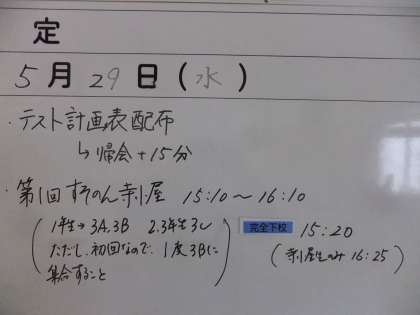 定
5月29日(水)
・テスト計画表配布
↳帰会+15分
・第1回すそのん寺小屋 15:10~16:10
(1年生→3A.3B 2.3年生3し
ただし、初回なので、1度3Bに
集合すること)
完全下校 15:20
(寺小屋生のみ16:25)